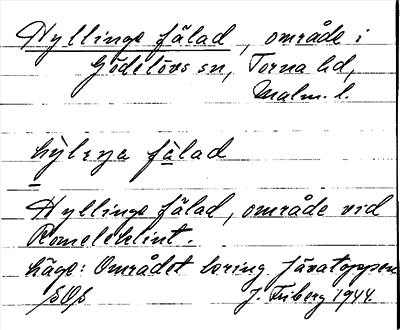 Hyllinge fälad, område i
Gödelövs sn, Torna hd,
Malm. l.
hyleŋa fälad
Hyllinge fälad, område vid
Romeleklint.
Läge: Området kring Jävatoppen
SOS J. Friberg 1944.